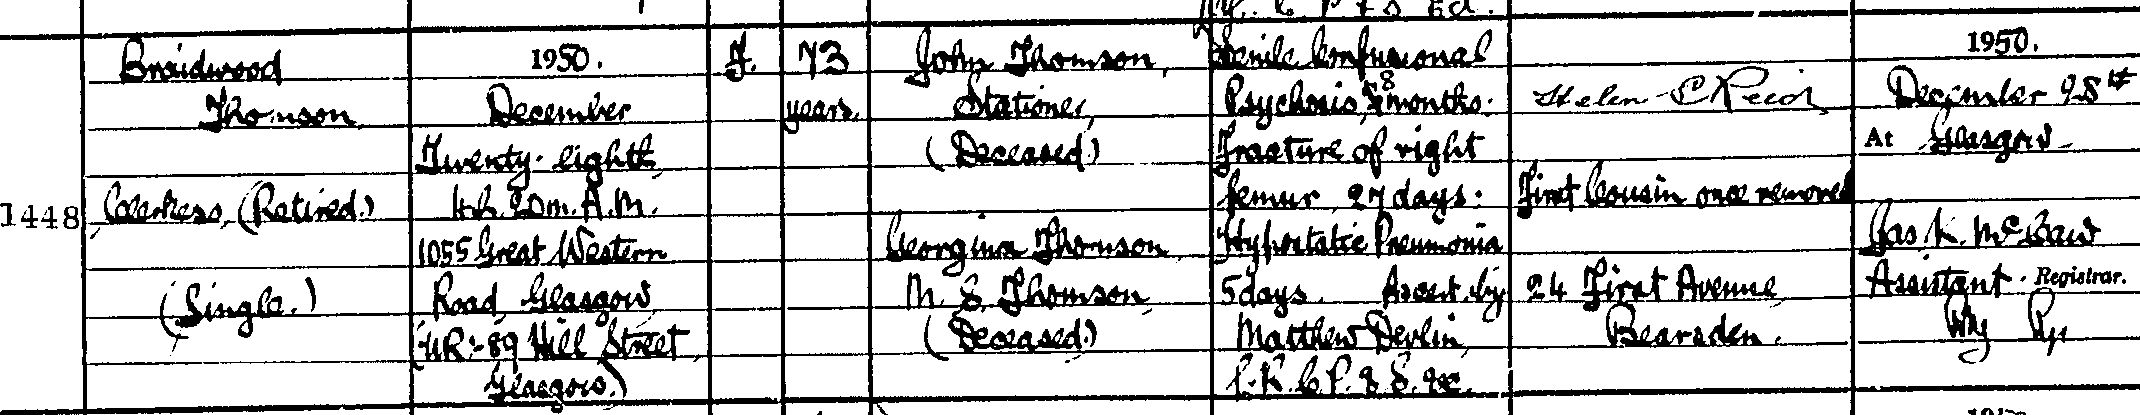 1448
Braidwood
Thomson
Clerkess, (Retired.)
(Single.)
1950.
December
Twenty-eighth,
4h. 20m. A.M.
1055 Great Western
Road, Glasgow
(UR:-89 Hill Street,
Glasgow.)
F.
73
years.
John Thomson,
Stationer,
(Deceased.)
Georgina Thomson,
M. S. Thomson,
(Deceased.)
Senile Confusional
Psychosis, 8 months.
Fracture of right
femur, 27 days.
Hypostatic Pneumonia
5 days. As cert. by
Matthew Devlin,
L.R.C.P. & S. &c.
Helen C Reid
First Cousin once removed
24 First Avenue,
Bearsden.
1950.
December 28th
At Glasgow
Jas. K.
Assistant Registrar.